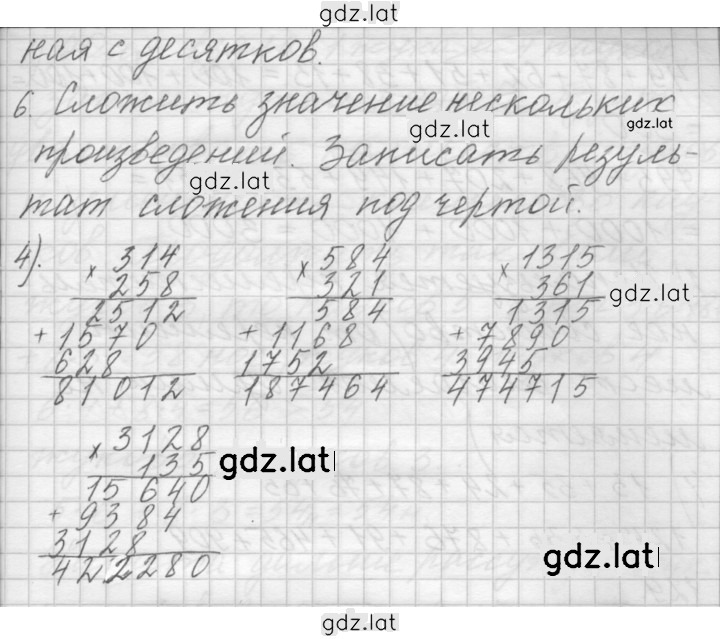 gdz.lat
ная с десятков.
6. Сложить значение нескольких
gdz.lat
gdz.lat
произведений. Записать резуль-
gdz.lat
тат сложения под чертой.
4).
× 314
258
2512
+ 1570
628
81012
× 584
321
584
+ 1168
1752
187464
× 1315
361
1315
gdz.lat
+ 7890
3945
474715
× 3128
135
gdz.lat
15640
+ 9384
3128
422280
gdz.lat
gdz.lat